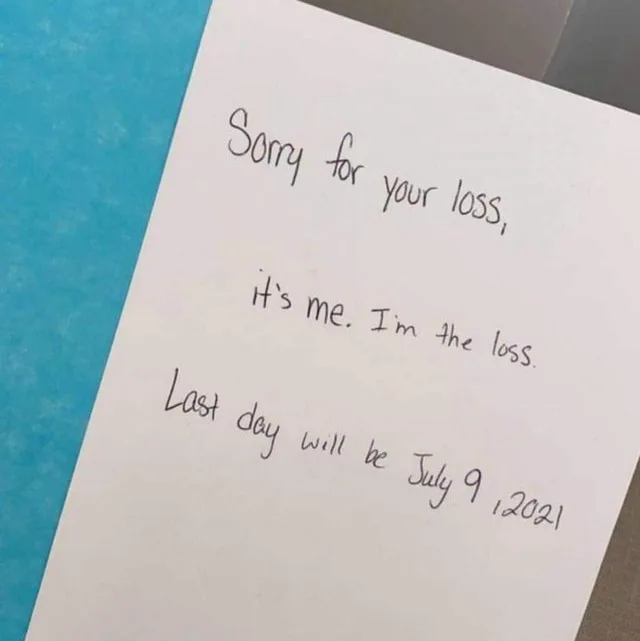 Sorry for your loss,
it's me. I'm the loss.
Last day will be July 9, 2021